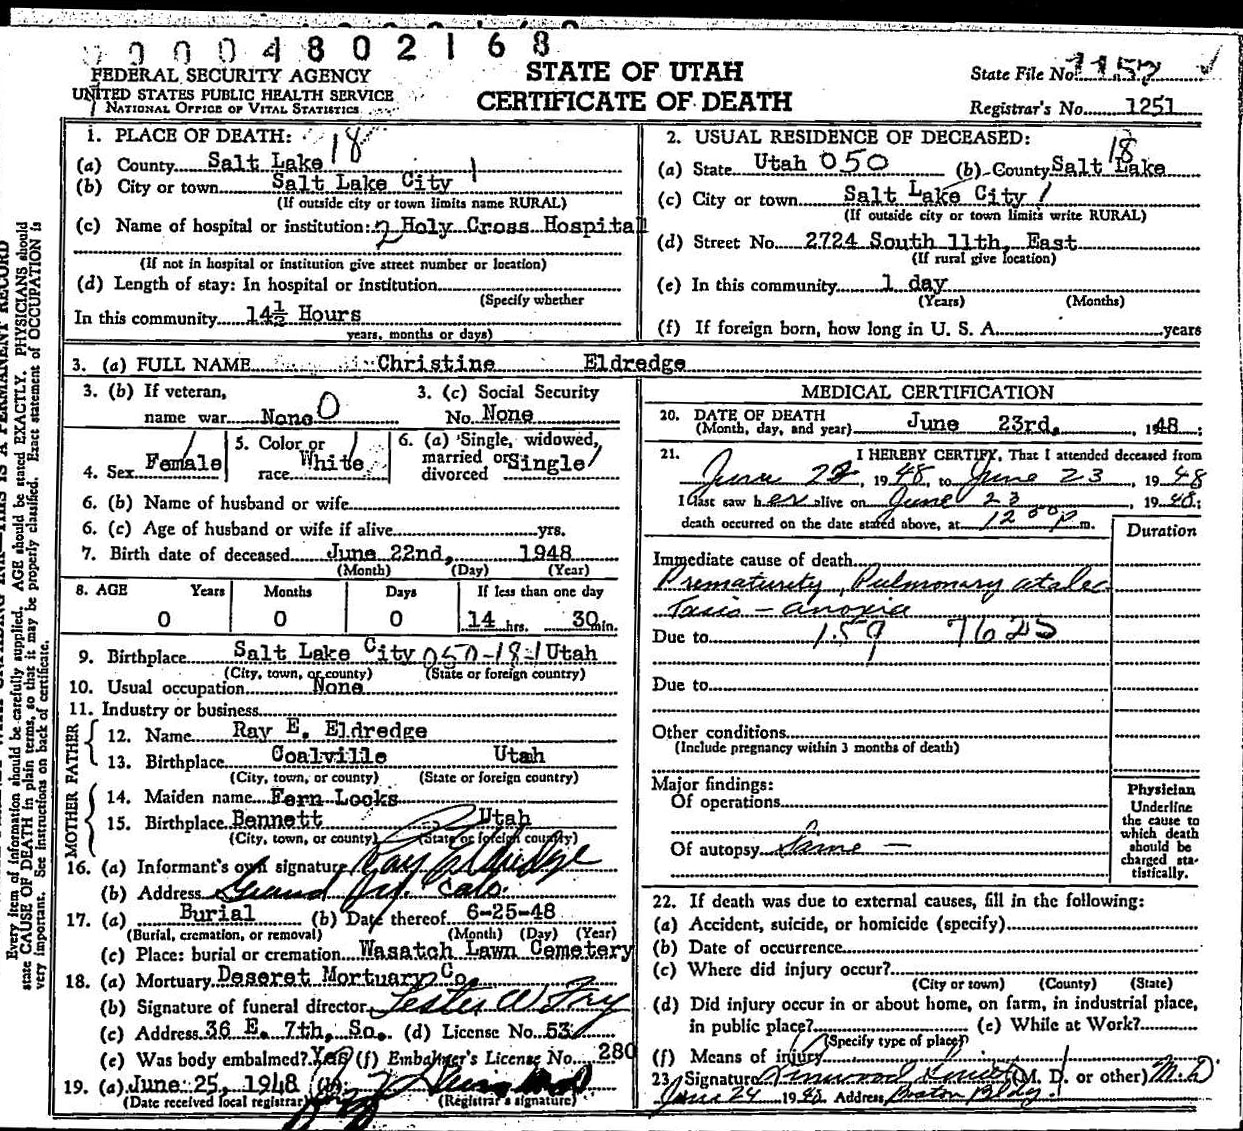 0004802168
FEDERAL SECURITY AGENCY
UNITED STATES PUBLIC HEALTH SERVICE
NATIONAL OFFICE OF VITAL STATISTICS
STATE OF UTAH
CERTIFICATE OF DEATH
State File No. 1157
Registrar's No. 1251
1. PLACE OF DEATH: 18
(a) County Salt Lake
(b) City or town Salt Lake City 1
(If outside city or town limits name RURAL)
(c) Name of hospital or institution: 2 Holy Cross Hospital
(If not in hospital or institution give street number or location)
(d) Length of stay: In hospital or institution
(Specify whether
In this community 14½ Hours
years, months or days)
2. USUAL RESIDENCE OF DECEASED:
(a) State Utah 050 (b) County Salt Lake 18
(c) City or town Salt Lake City 1
(If outside city or town limits write RURAL)
(d) Street No. 2724 South 11th, East
(If rural give location)
(e) In this community 1 day
(Years) (Months)
(f) If foreign born, how long in U. S. A. years
3. (a) FULL NAME Christine Eldredge
3. (b) If veteran, 3. (c) Social Security
name war None 0 No. None
4. Sex Female 5. Color or race White 6. (a) Single, widowed, married or divorced Single
6. (b) Name of husband or wife
6. (c) Age of husband or wife if alive yrs.
7. Birth date of deceased June 22nd, 1948
(Month) (Day) (Year)
8. AGE Years Months Days If less than one day
0 0 0 14 hrs. 30 min.
9. Birthplace Salt Lake City 050-18-1 Utah
(City, town, or county) (State or foreign country)
10. Usual occupation None
11. Industry or business
FATHER
12. Name Ray E. Eldredge
13. Birthplace Coalville Utah
(City, town, or county) (State or foreign country)
MOTHER
14. Maiden name Fern Looks
15. Birthplace Bennett Utah
(City, town, or county) (State or foreign country)
16. (a) Informant's own signature Ray Eldredge
(b) Address Grand Jct. Colo.
17. (a) Burial (b) Date thereof 6-25-48
(Burial, cremation, or removal) (Month) (Day) (Year)
(c) Place: burial or cremation Wasatch Lawn Cemetery
18. (a) Mortuary Deseret Mortuary Co.
(b) Signature of funeral director Lester W Fry
(c) Address 36 E. 7th, So. (d) License No. 53
(e) Was body embalmed? Yes (f) Embalmer's License No. 280
19. (a) June 25, 1948 (b)
(Date received local registrar) (Registrar's signature)
MEDICAL CERTIFICATION
20. DATE OF DEATH
(Month, day, and year) June 23rd, 1948;
21. I HEREBY CERTIFY, That I attended deceased from
June 22, 1948, to June 23, 1948
I last saw her alive on June 23, 1948;
death occurred on the date stated above, at 12 00 P m.
Duration
Immediate cause of death
Prematurity, Pulmonary atalec
tasis - anoxia
Due to 159 7625
Due to
Other conditions
(Include pregnancy within 3 months of death)
Major findings:
Of operations
Of autopsy Same -
Physician
Underline
the cause to
which death
should be
charged sta-
tistically.
22. If death was due to external causes, fill in the following:
(a) Accident, suicide, or homicide (specify)
(b) Date of occurrence
(c) Where did injury occur?
(City or town) (County) (State)
(d) Did injury occur in or about home, on farm, in industrial place,
in public place? (e) While at Work?
(Specify type of place)
(f) Means of injury
23. Signature (M. D. or other) M.D
June 24 1948 Address Boston Bldg.
Every item of information should be carefully supplied. AGE should be stated EXACTLY. PHYSICIANS should
state CAUSE OF DEATH in plain terms, so that it may be properly classified. Exact statement of OCCUPATION is
very important. See instructions on back of certificate.